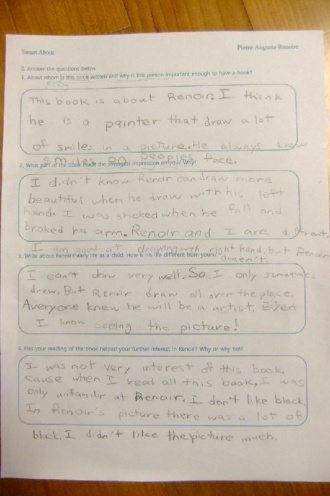 Smart About
Pierre-Auguste Renoir
2. Answer the questions below
1. About whom is the book written and why is this person important enough to have a book?
This book is about Renoir. I think
he is a painter that draw a lot
of smiles in a picture. He always draw
smiles on peoples face.
2. What part of this book made the strongest impression on you? Why?
I didn't know Renoir can draw more
beautiful when he draw with his left
hand. I was shoked when he fall and
broked his arm. Renoir and I are different.
I am good at drawing with right hand, but Renoir
doesn't.
3. Write about Renoir's early life as a child. How is his life different from yours?
I can't draw very well. So I only sometimes
drew. But Renoir draw all over the place.
Averyone knew he will be a artist. Even
I know seeing the picture!
4. Has your reading of this book helped your further interest in Renoir? Why or why not?
I was not very interest of this book
cause when I read all this book, I was
only unfamiliar at Renoir. I don't like black.
In Renoir's picture there was a lot of
black. I didn't like the picture much.